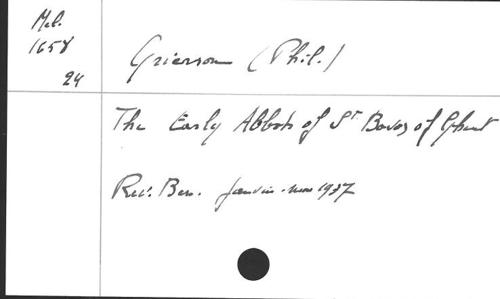 Mel.
1658
24
Grierson (Phil.)
The Early Abbots of St Bavos of Ghent
Rev. Ben. Janvier-mars 1937